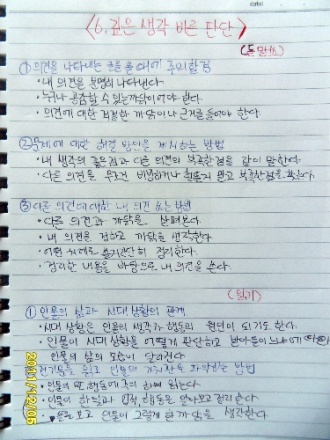 <6. 깊은 생각 바른 판단>
(듣·말·쓰)
① 의견을 나타내는 글을 쓸 때에 주의할 점
· 내 의견을 분명히 나타낸다.
· 누구나 공감할 수 있는 까닭이어야 한다.
· 의견에 대한 적절한 까닭이나 근거를 들어야 한다.
② 문제에 대한 해결 방안을 제시하는 방법
· 내 생각의 좋은점과 다른 의견의 부족한 점을 같이 말한다.
· 다른 의견을 무조건 비난하거나 말고 부족한 점을
③ 다른 의견에 대한 내 의견 쓰는 방법
· 다른 의견과 까닭을 살펴본다.
· 내 의견을 정하고 까닭을 생각한다.
· 어떤 차례로 쓸지 간단히 정리한다.
· 정리한 내용을 바탕으로 내 의견을 쓴다.
(읽기)
① 인물의 삶과 시대 상황의 관계
· 시대 상황은 인물의 생각과 행동의 원인이 되기도 한다.
· 인물이 시대 상황을 어떻게 판단하고 받아들이느냐에 따라
인물의 삶의 모습이 달라진다.
전기문을 읽고 인물의 가치관을 파악하는 방법
· 인물의 말, 행동에 주의하며 읽는다.
· 인물이 한 일과 업적, 행동을 알아보고 정리한다.
· 인물이 그렇게 한 까닭을 생각한다.
2011/12/05